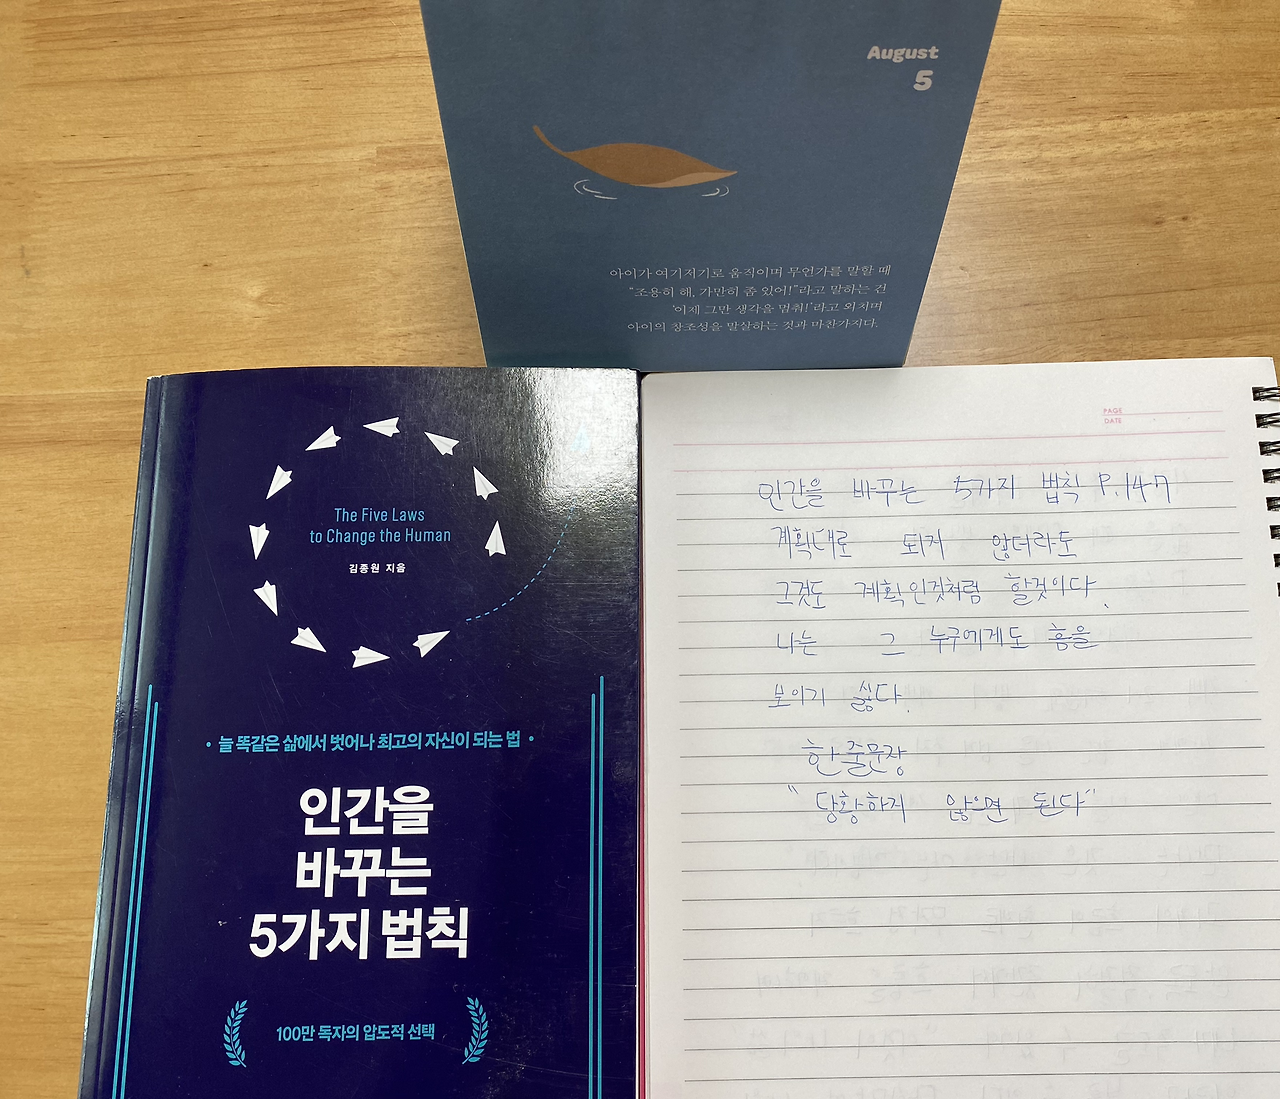 August
5
아이가 여기저기로 움직이며 무언가를 말할 때
“조용히 해, 가만히 좀 있어!”라고 말하는 건
‘이제 그만 생각을 멈춰!’라고 외치며
아이의 창조성을 말살하는 것과 마찬가지다.
The Five Laws
to Change the Human
김종원 지음
• 늘 똑같은 삶에서 벗어나 최고의 자신이 되는 법 •
인간을
바꾸는
5가지 법칙
100만 독자의 압도적 선택
PAGE
DATE
인간을 바꾸는 5가지 법칙 P.147
계획대로 되지 않더라도
그것도 계획인것처럼 할것이다.
나는 그 누구에게도 흠을
보이기 싫다.
한 줄문장
“당황하지 않으면 된다”